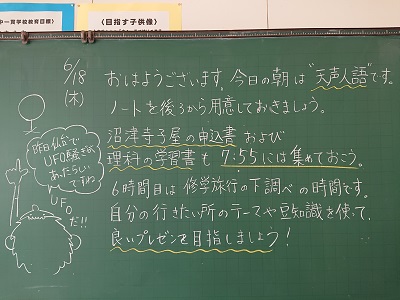 中一貫学校教育目標〉
〈目指す子供像〉
6/18
(木)
おはようございます。今日の朝は“天声人語”です。
ノートを後ろから用意しておきましょう。
沼津寺子屋の申込書 および
理科の学習書も 7:55には集めておこう。
6時間目は 修学旅行の下調べの時間です。
自分の行きたい所のテーマや豆知識を使って、
良いプレゼンを目指しましょう!
昨日仙台で
UFO騒ぎが
あったらしい
ですね
UFO
だ!!